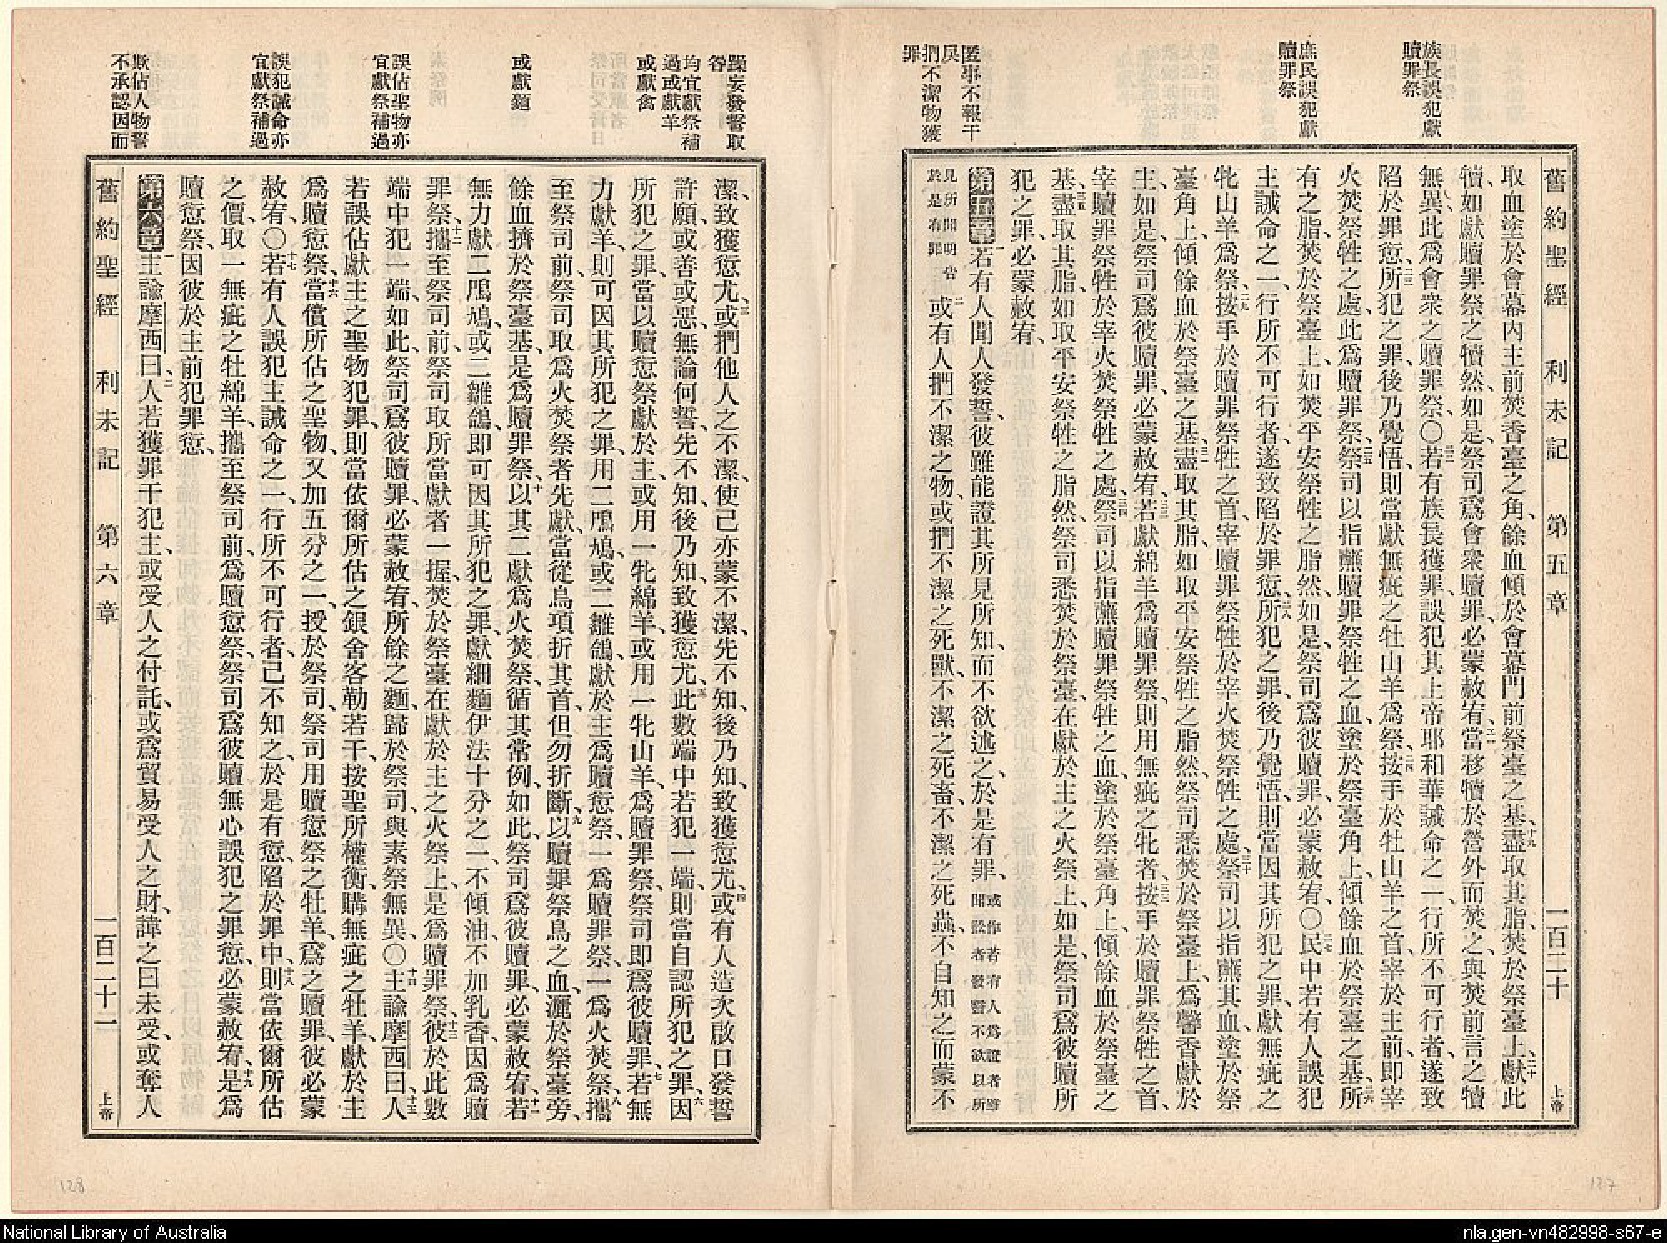 族長誤犯獻
贖罪祭
庶民誤犯獻
贖罪祭
匿事不報干
戾
捫不潔物獲
罪
舊約聖經 利未記 第五章 一百二十 上帝
取血塗於會幕內主前焚香臺之角、餘血傾於會幕門前祭臺之基、十九盡取其脂、焚於祭臺上、二十獻此
犢、如獻贖罪祭之犢然、如是、祭司爲會衆贖罪、必蒙赦宥、二一當移犢於營外而焚之、與焚前言之犢
無異、此爲會衆之贖罪祭、〇二二若有族長獲罪、誤犯其上帝耶和華誡命之一、行所不可行者、遂致
陷於罪愆、二三所犯之罪、後乃覺悟、則當獻無疵之牡山羊爲祭、二四按手於牡山羊之首、宰於主前、卽宰
火焚祭牲之處、此爲贖罪祭、二五祭司以指蘸贖罪祭牲之血、塗於祭臺角上、傾餘血於祭臺之基、二六所
有之脂、焚於祭臺上、如焚平安祭牲之脂然、如是、祭司爲彼贖罪、必蒙赦宥、〇二七民中若有人誤犯
主誡命之一、行所不可行者、遂致陷於罪愆、二八所犯之罪、後乃覺悟、則當因其所犯之罪、獻無疵之
牝山羊爲祭、二九按手於贖罪祭牲之首、宰贖罪祭牲於宰火焚祭牲之處、三十祭司以指蘸其血、塗於祭
臺角上、傾餘血於祭臺之基、三一盡取其脂、如取平安祭牲之脂然、祭司悉焚於祭臺上、爲馨香獻於
主、如是、祭司爲彼贖罪、必蒙赦宥、三二若獻綿羊爲贖罪祭、則用無疵之牝者、三三按手於贖罪祭牲之首、
宰贖罪祭牲於宰火焚祭牲之處、三四祭司以指蘸贖罪祭牲之血、塗於祭臺角上、傾餘血於祭臺之
基、三五盡取其脂、如取平安祭牲之脂然、祭司悉焚於祭臺、在獻於主之火祭上、如是、祭司爲彼贖所
犯之罪、必蒙赦宥、
第五章 一若有人聞人發誓、彼雖能證其所見所知、而不欲述之、於是有罪、或作若有人爲證者等聞設者發誓不欲以所
見所聞明告於是有罪 二或有人捫不潔之物、或捫不潔之死獸、不潔之死畜、不潔之死蟲、不自知之而蒙不
躁妄發誓取
咎
均宜獻祭補
過或獻羊
或獻禽
或獻麵
誤佔聖物亦
宜獻祭補過
誤犯誡命亦
宜獻祭補過
欺佔人物誓
不承認因而
潔、致獲愆尤、三或捫他人之不潔、使己亦蒙不潔、先不知、後乃知、致獲愆尤、四或有人造次啟口發誓
許願、或善或惡、無論何誓、先不知、後乃知、致獲愆尤、五此數端中若犯一端、則當自認所犯之罪、六因
所犯之罪、當以贖愆祭獻於主、或用一牝綿羊、或用一牝山羊、爲贖罪祭、祭司卽爲彼贖罪、七若無
力獻羊、則可因其所犯之罪、用二鳲鳩、或二雛鴿、獻於主爲贖愆祭、一爲贖罪祭、一爲火焚祭、八攜
至祭司前、祭司取爲火焚祭者先獻、當從鳥項折其首、但勿折斷、九以贖罪祭鳥之血、灑於祭臺旁、
餘血擠於祭臺基、是爲贖罪祭、十以其二獻爲火焚祭、循其常例、如此、祭司爲彼贖罪、必蒙赦宥、十一若
無力獻二鳲鳩、或二雛鴿、卽可因其所犯之罪、獻細麵伊法十分之一、不傾油、不加乳香、因爲贖
罪祭、十二攜至祭司前、祭司取所當獻者一握、焚於祭臺、在獻於主之火祭上、是爲贖罪祭、十三彼於此數
端中犯一端、如此、祭司爲彼贖罪、必蒙赦宥、所餘之麵、歸於祭司、與素祭無異、〇十四主諭摩西曰、十五人
若誤佔獻主之聖物犯罪、則當依爾所估之銀、舍客勒若干、按聖所權衡、購無疵之牡羊、獻於主
爲贖愆祭、十六當償所佔之聖物、又加五分之一、授於祭司、祭司用贖愆祭之牡羊、爲之贖罪、彼必蒙
赦宥、〇十七若有人誤犯主誡命之一、行所不可行者、己不知之、於是有愆、陷於罪中、十八則當依爾所估
之價、取一無疵之牡綿羊、攜至祭司前、爲贖愆祭、祭司爲彼贖無心誤犯之罪愆、必蒙赦宥、十九是爲
贖愆祭、因彼於主前犯罪愆、
第六章 一主諭摩西曰、二人若獲罪干犯主、或受人之付託、或爲貿易受人之財、諱之曰未受、或奪人
舊約聖經 利未記 第六章 一百二十一 上帝
128
127
National Library of Australia
nla.gen-vn482998-s67-e